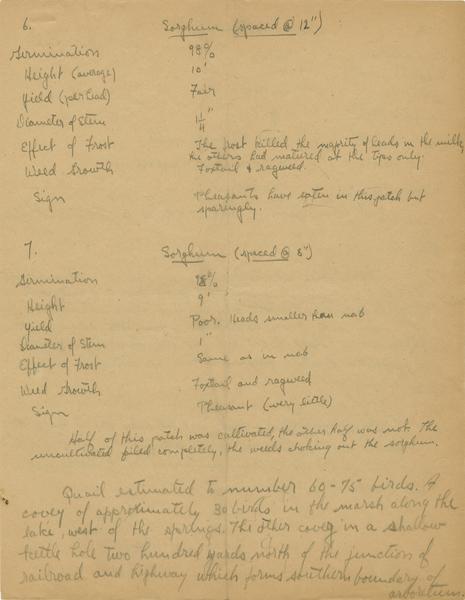 6. Sorghum (spaced @ 12")
Germination 98%
Height (average) 10'
Yield (per head) Fair
Diameter of Stem 1 1/4"
Effect of Frost The frost killed the majority of heads in the milky
the others had matured at the tips only.
Weed Growth Foxtail & ragweed.
Sign Pheasants have eaten in this patch but
sparingly.
7. Sorghum (spaced @ 8")
Germination 98%
Height 9'
Yield Poor. Heads smaller than no6
Diameter of Stem 1"
Effect of Frost Same as in no6
Weed Growth Foxtail and ragweed
Sign Pheasant (very little)
Half of this patch was cultivated, the other half was not. The
uncultivated failed completely, the weeds choking out the sorghum.
Quail estimated to number 60-75 birds. A
covey of approximately 30 birds in the marsh along the
lake, west of the springs. The other covey in a shallow
kettle hole two hundred yards north of the junction of
railroad and highway which forms southern boundary of
arboretum.